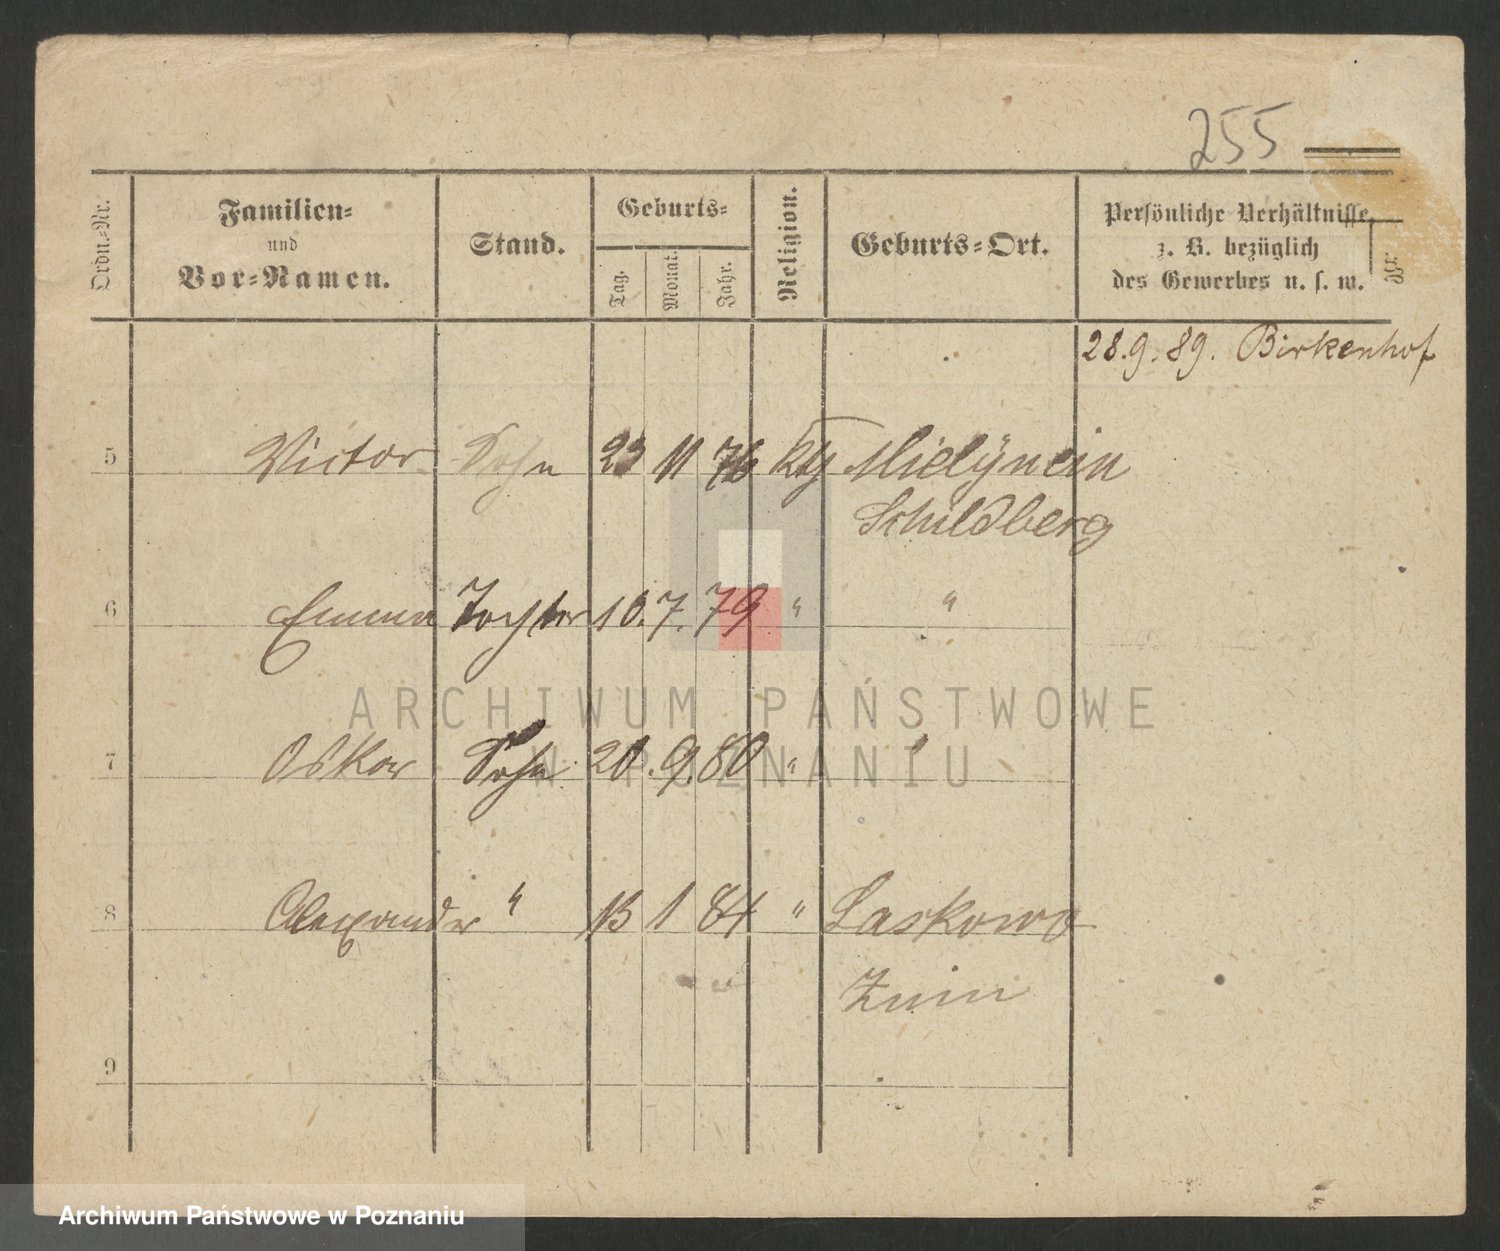 255
Ordn.-Nr.
Familien-
und
Vor-Namen.
Stand.
Geburts-
Tag.
Monat.
Jahr.
Religion.
Geburts-Ort.
Persönliche Verhältnisse,
z. B. bezüglich
des Gewerbes u. s. w.
28.9.89. Birkenhof
5 Victor Sohn 23 11 76
Schildberg
6 Emma Tochter 10.7.79 " "
7 Oskar Sohn 20.9.80 " "
8 Alexander " 13 1 84 " Laskowo
Znin
9
ARCHIWUM PAŃSTWOWE
W POZNANIU
Archiwum Państwowe w Poznaniu